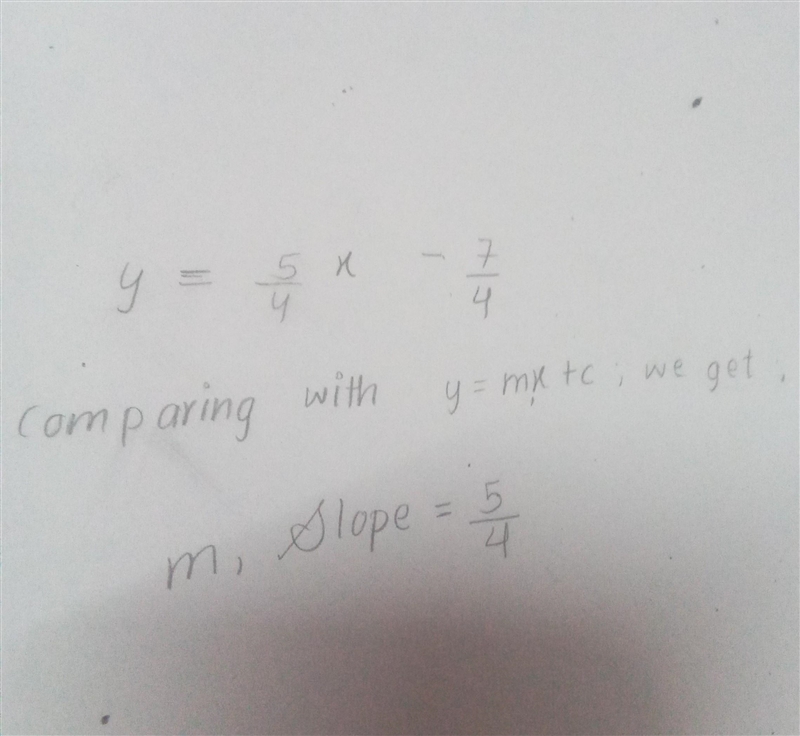 y = 5/4 x - 7/4
comparing with y = mx + c ; we get ;
m, Slope = 5/4